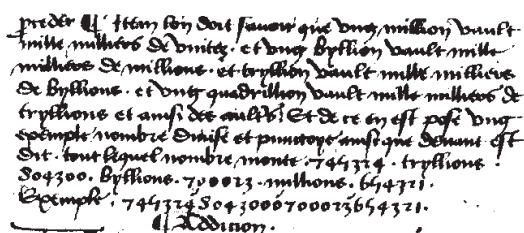 preder ¶ Item lon doit savoir que ung million vault
mille milliers de unitez . et ung byllion vault mille
milliers de millions . et tryllion vault mille milliers
de byllions . et ung quadrillion vault mille milliers de
tryllions et ainsi des aultres Et de ce en est pose ung
exemple nombre divise et punctoye ainsi que devant est
dit . tout lequel nombre monte . 745324 . tryllions .
804300 . byllions . 700023 . millions . 654321 .
Exemple . 7453248043000700023654321 .
¶ Addicion .